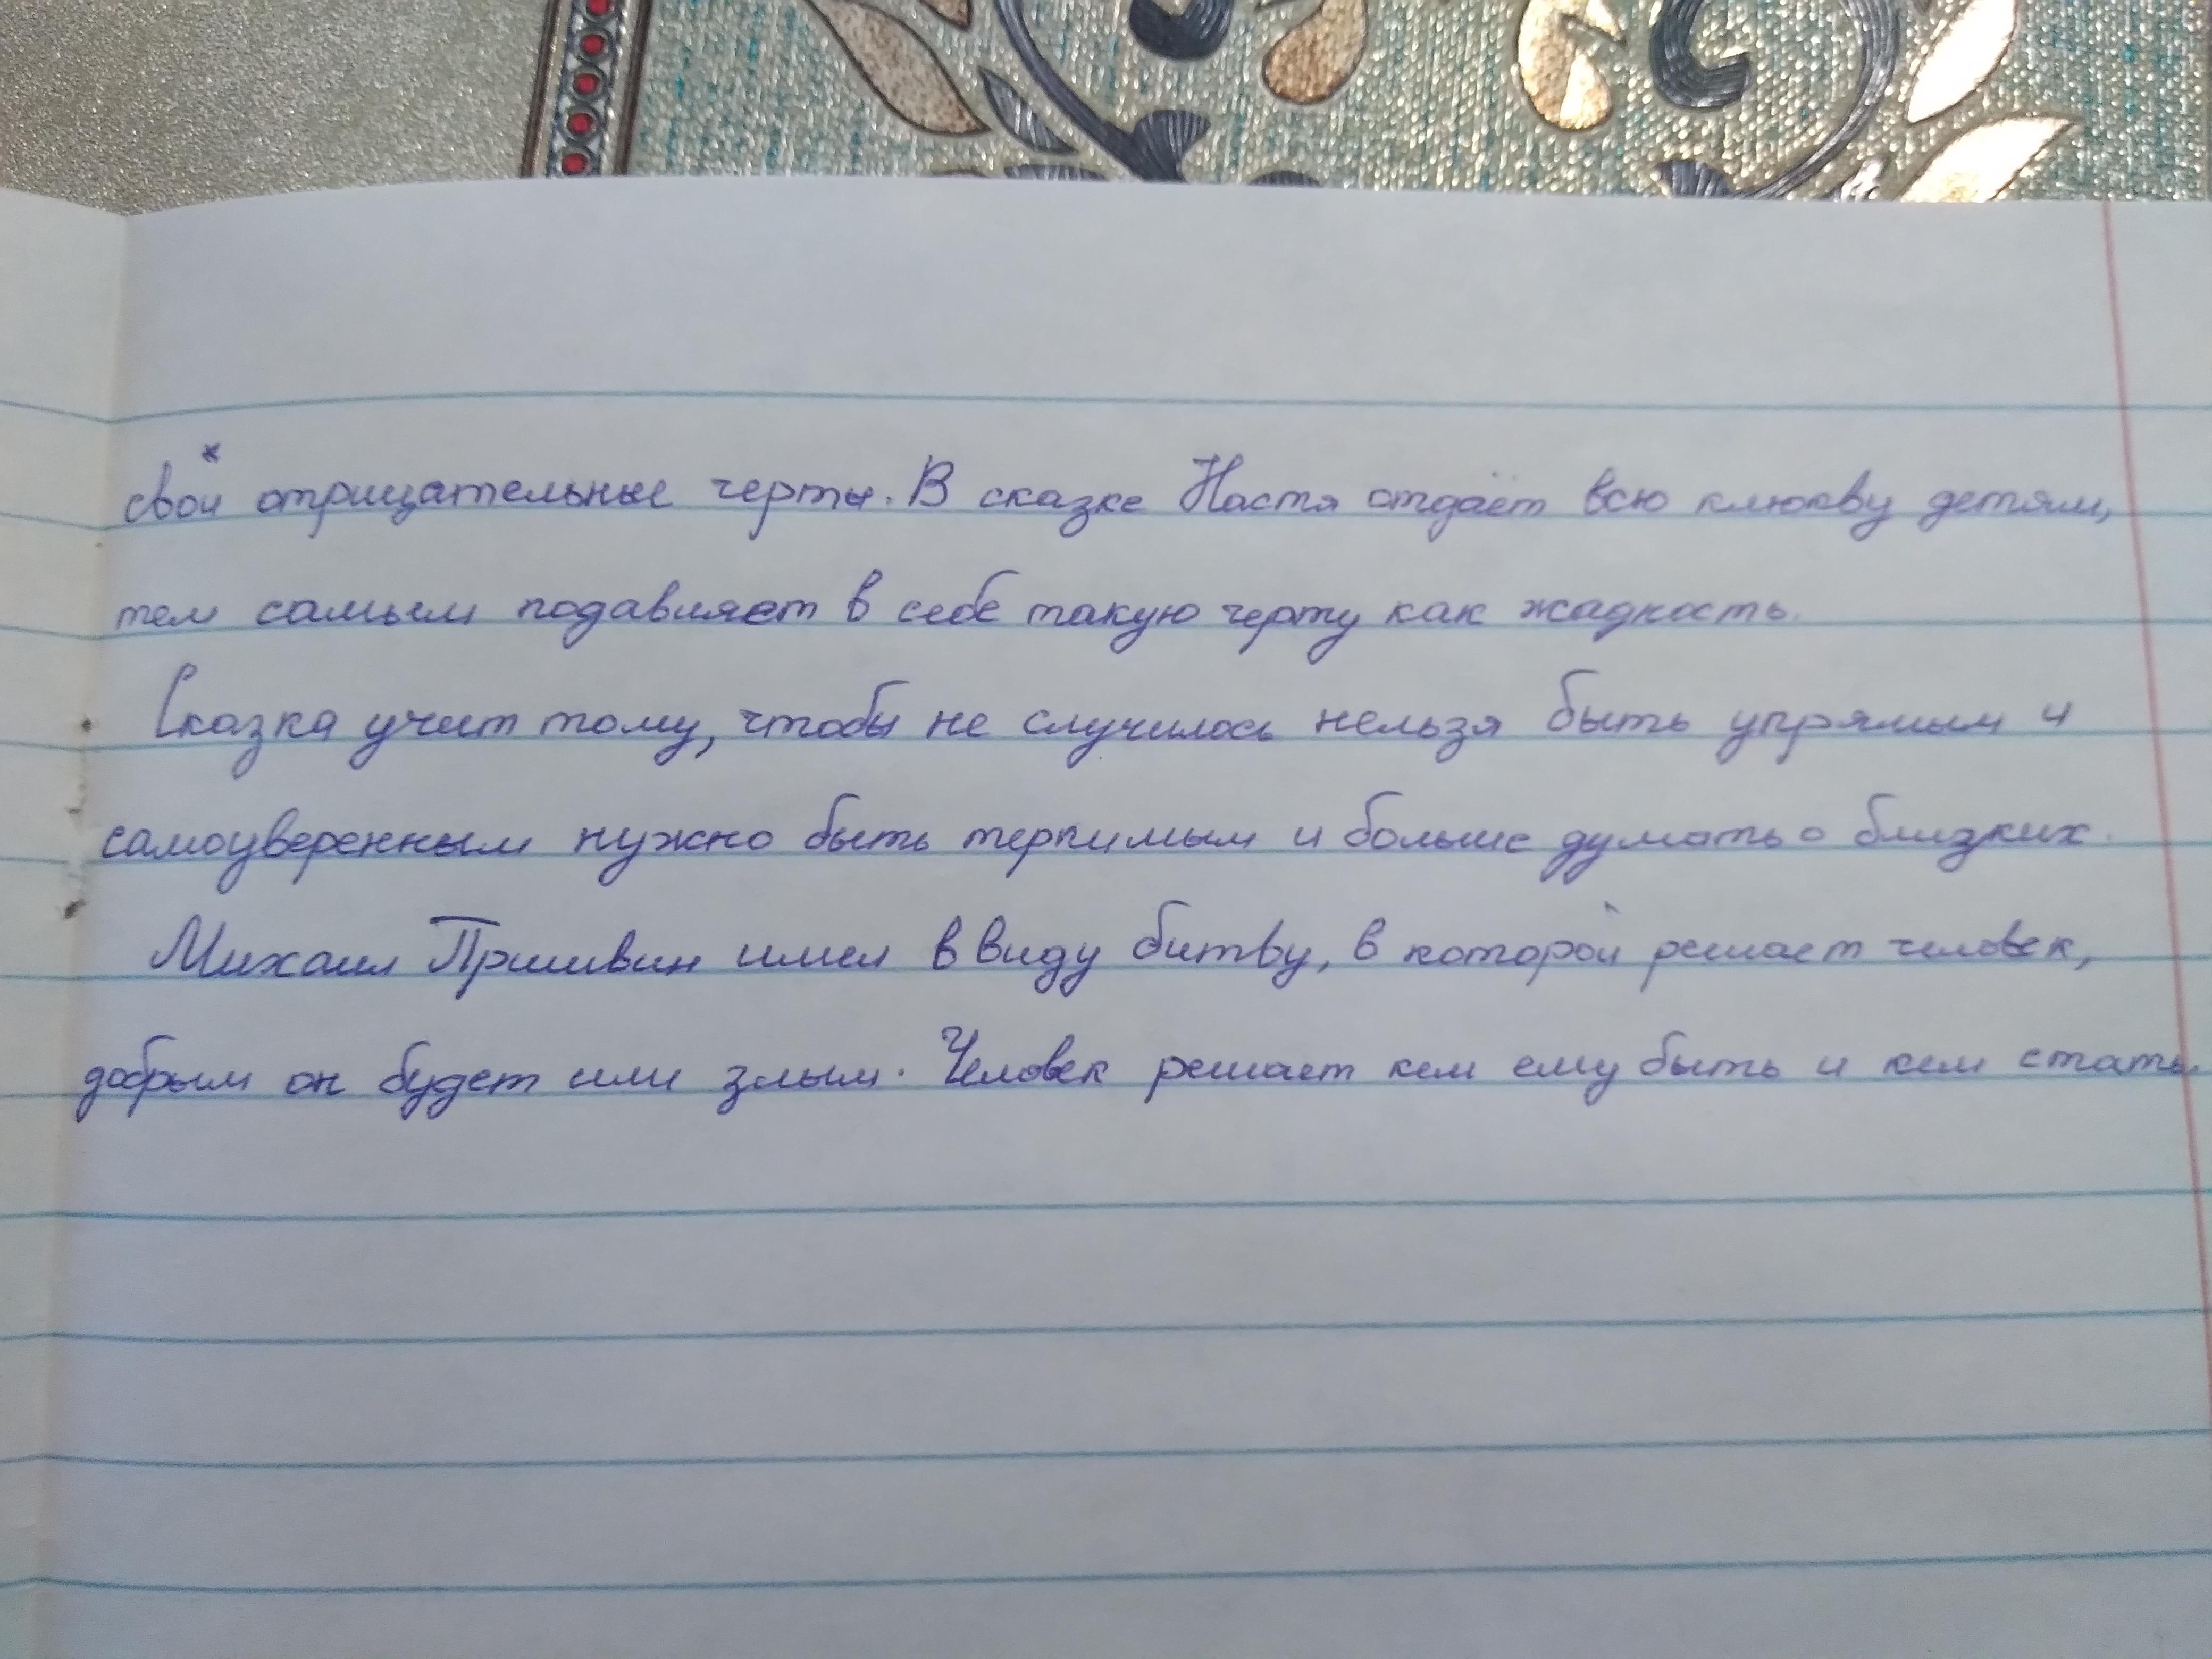 свои отрицательные черты. В сказке Настя отдаёт всю клюкву детям,
тем самым подавляет в себе такую черту как жадность.
Сказка учит тому, чтобы не случилось нельзя быть упрямым и
самоуверенным нужно быть терпимым и больше думать о близких.
Михаил Пришвин имел в виду битву, в которой решает человек,
добрым он будет или злым. Человек решает кем ему быть и кем стать.